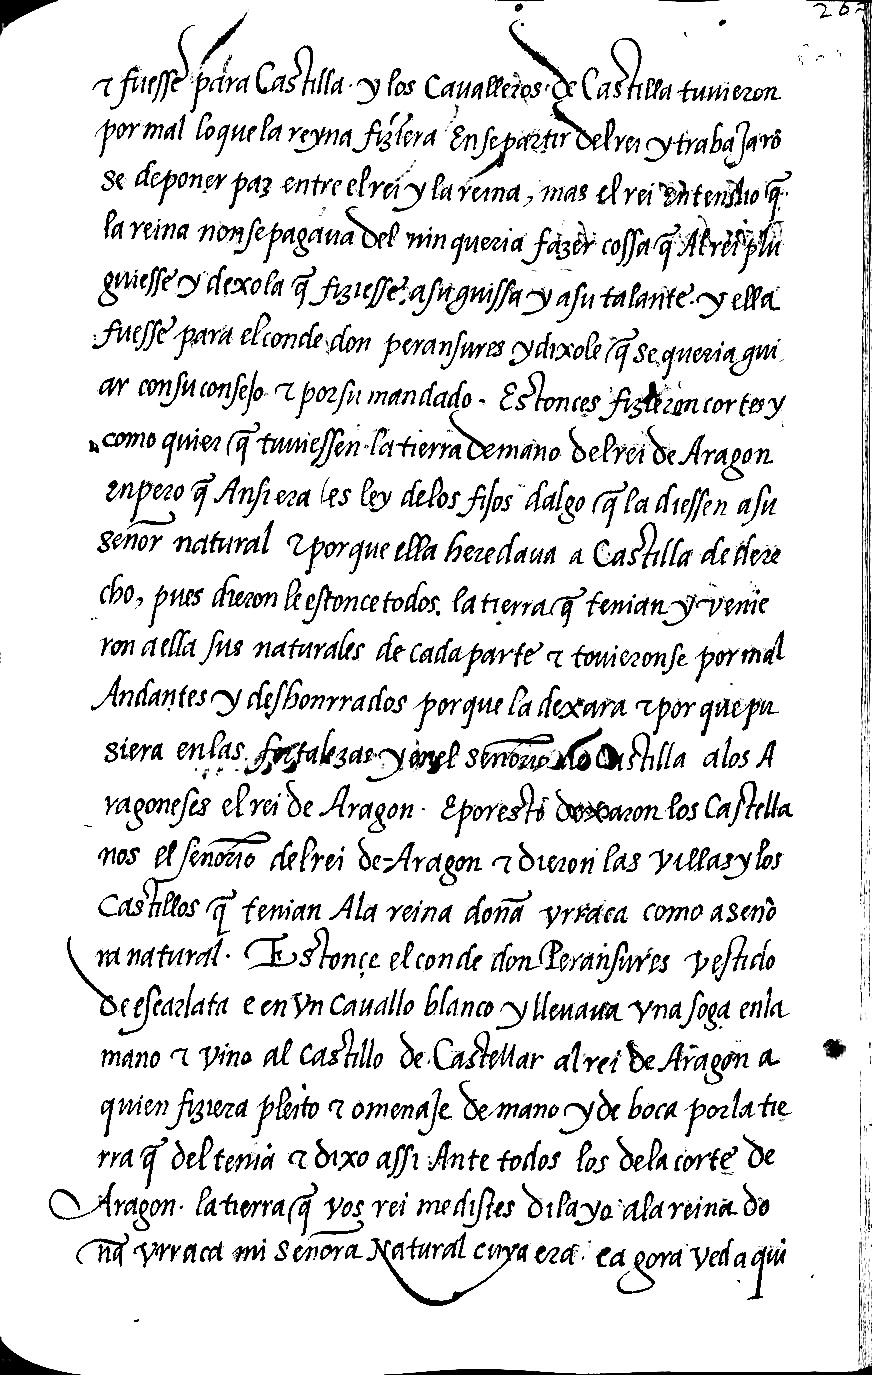 262
⁊ fuesse para Castilla · y los Cavalleros · de Castilla tuvieron
por mal lo que la reyna fiziera En se partir del rei y trabaJarō
se de poner paz entre el rei y la reina, mas el rei Entendio q̃
la reina non se pagaua del nin queria fazer cossa q̃ Al rei plu
guiesse y dexola q̃ fiziesse. a su guissa y a su talante · y ella
fuesse para el conde don peransures y dixole q̃ se queria gui
ar con su conseJo ⁊ por su mandado · Estonces fizieron cortes y
como quier q̃ tuuiessen la tierra de mano del rei de Aragon
enpero q̃ Ansi era les ley de los fijos dalgo q̃ la diessen a su
señor natural ⁊ por que ella heredaua a Castilla de dere
cho, pues dieron le estonce todos. la tierra q̃ tenian y venie
ron a ella sus naturales de cada parte ⁊ tovieronse por mal
Andantes y deshonrrados por que la dexara ⁊ por que pu
siera en las fortalezas y en el señorio de Castilla a los A
ragoneses el rei de Aragon · E por esto dexaron los Castella
nos el señorio del rei de Aragon ⁊ dieron las villas y los
Castillos q̃ tenian A la reina doña vrraca como a seño
ra natural · Estonçe el conde don Peransures vestido
de escarlata e en vn cavallo blanco y lleuaua vna soga en la
mano ⁊ vino al castillo de Castellar al rei de Aragon a
quien fiziera pleito ⁊ omenaJe de mano y de boca por la tie
rra q̃ del tenia ⁊ dixo assi Ante todos los de la corte de
Aragon · la tierra q̃ vos rei me distes dila yo a la reina do
ña vrraca mi señora Natural cuya era · e agora ved aqui